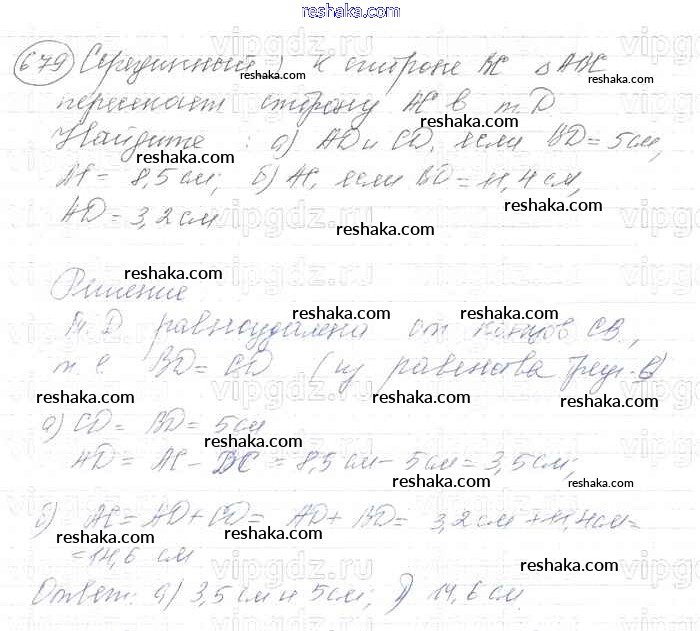 reshaka.com
679 Серединный ⊥ к стороне BC △ABC
reshaka.com
пересекает сторону AC в т. D.
reshaka.com
Найдите: а) AD и CD, если BD = 5 см,
reshaka.com
AC = 8,5 см; б) AC, если BD = 11,4 см,
reshaka.com
AD = 3,2 см
reshaka.com
reshaka.com
Решение
reshaka.com reshaka.com
Т. D равноудалена от концов CB,
т. е. BD = CD (из равенства треуг.-в)
reshaka.com reshaka.com reshaka.com
а) CD = BD = 5 см
reshaka.com
AD = AC - DC = 8,5 см - 5 см = 3,5 см;
reshaka.com reshaka.com
б) AC = AD + CD = AD + BD = 3,2 см + 11,4 см =
reshaka.com
= 14,6 см
reshaka.com
Ответ: а) 3,5 см и 5 см; б) 14,6 см.
reshaka.com reshaka.com